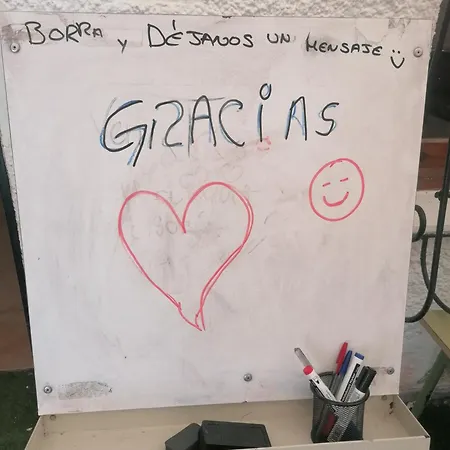 BORRA y DÉJANOS UN MENSAJE
GRACIAS